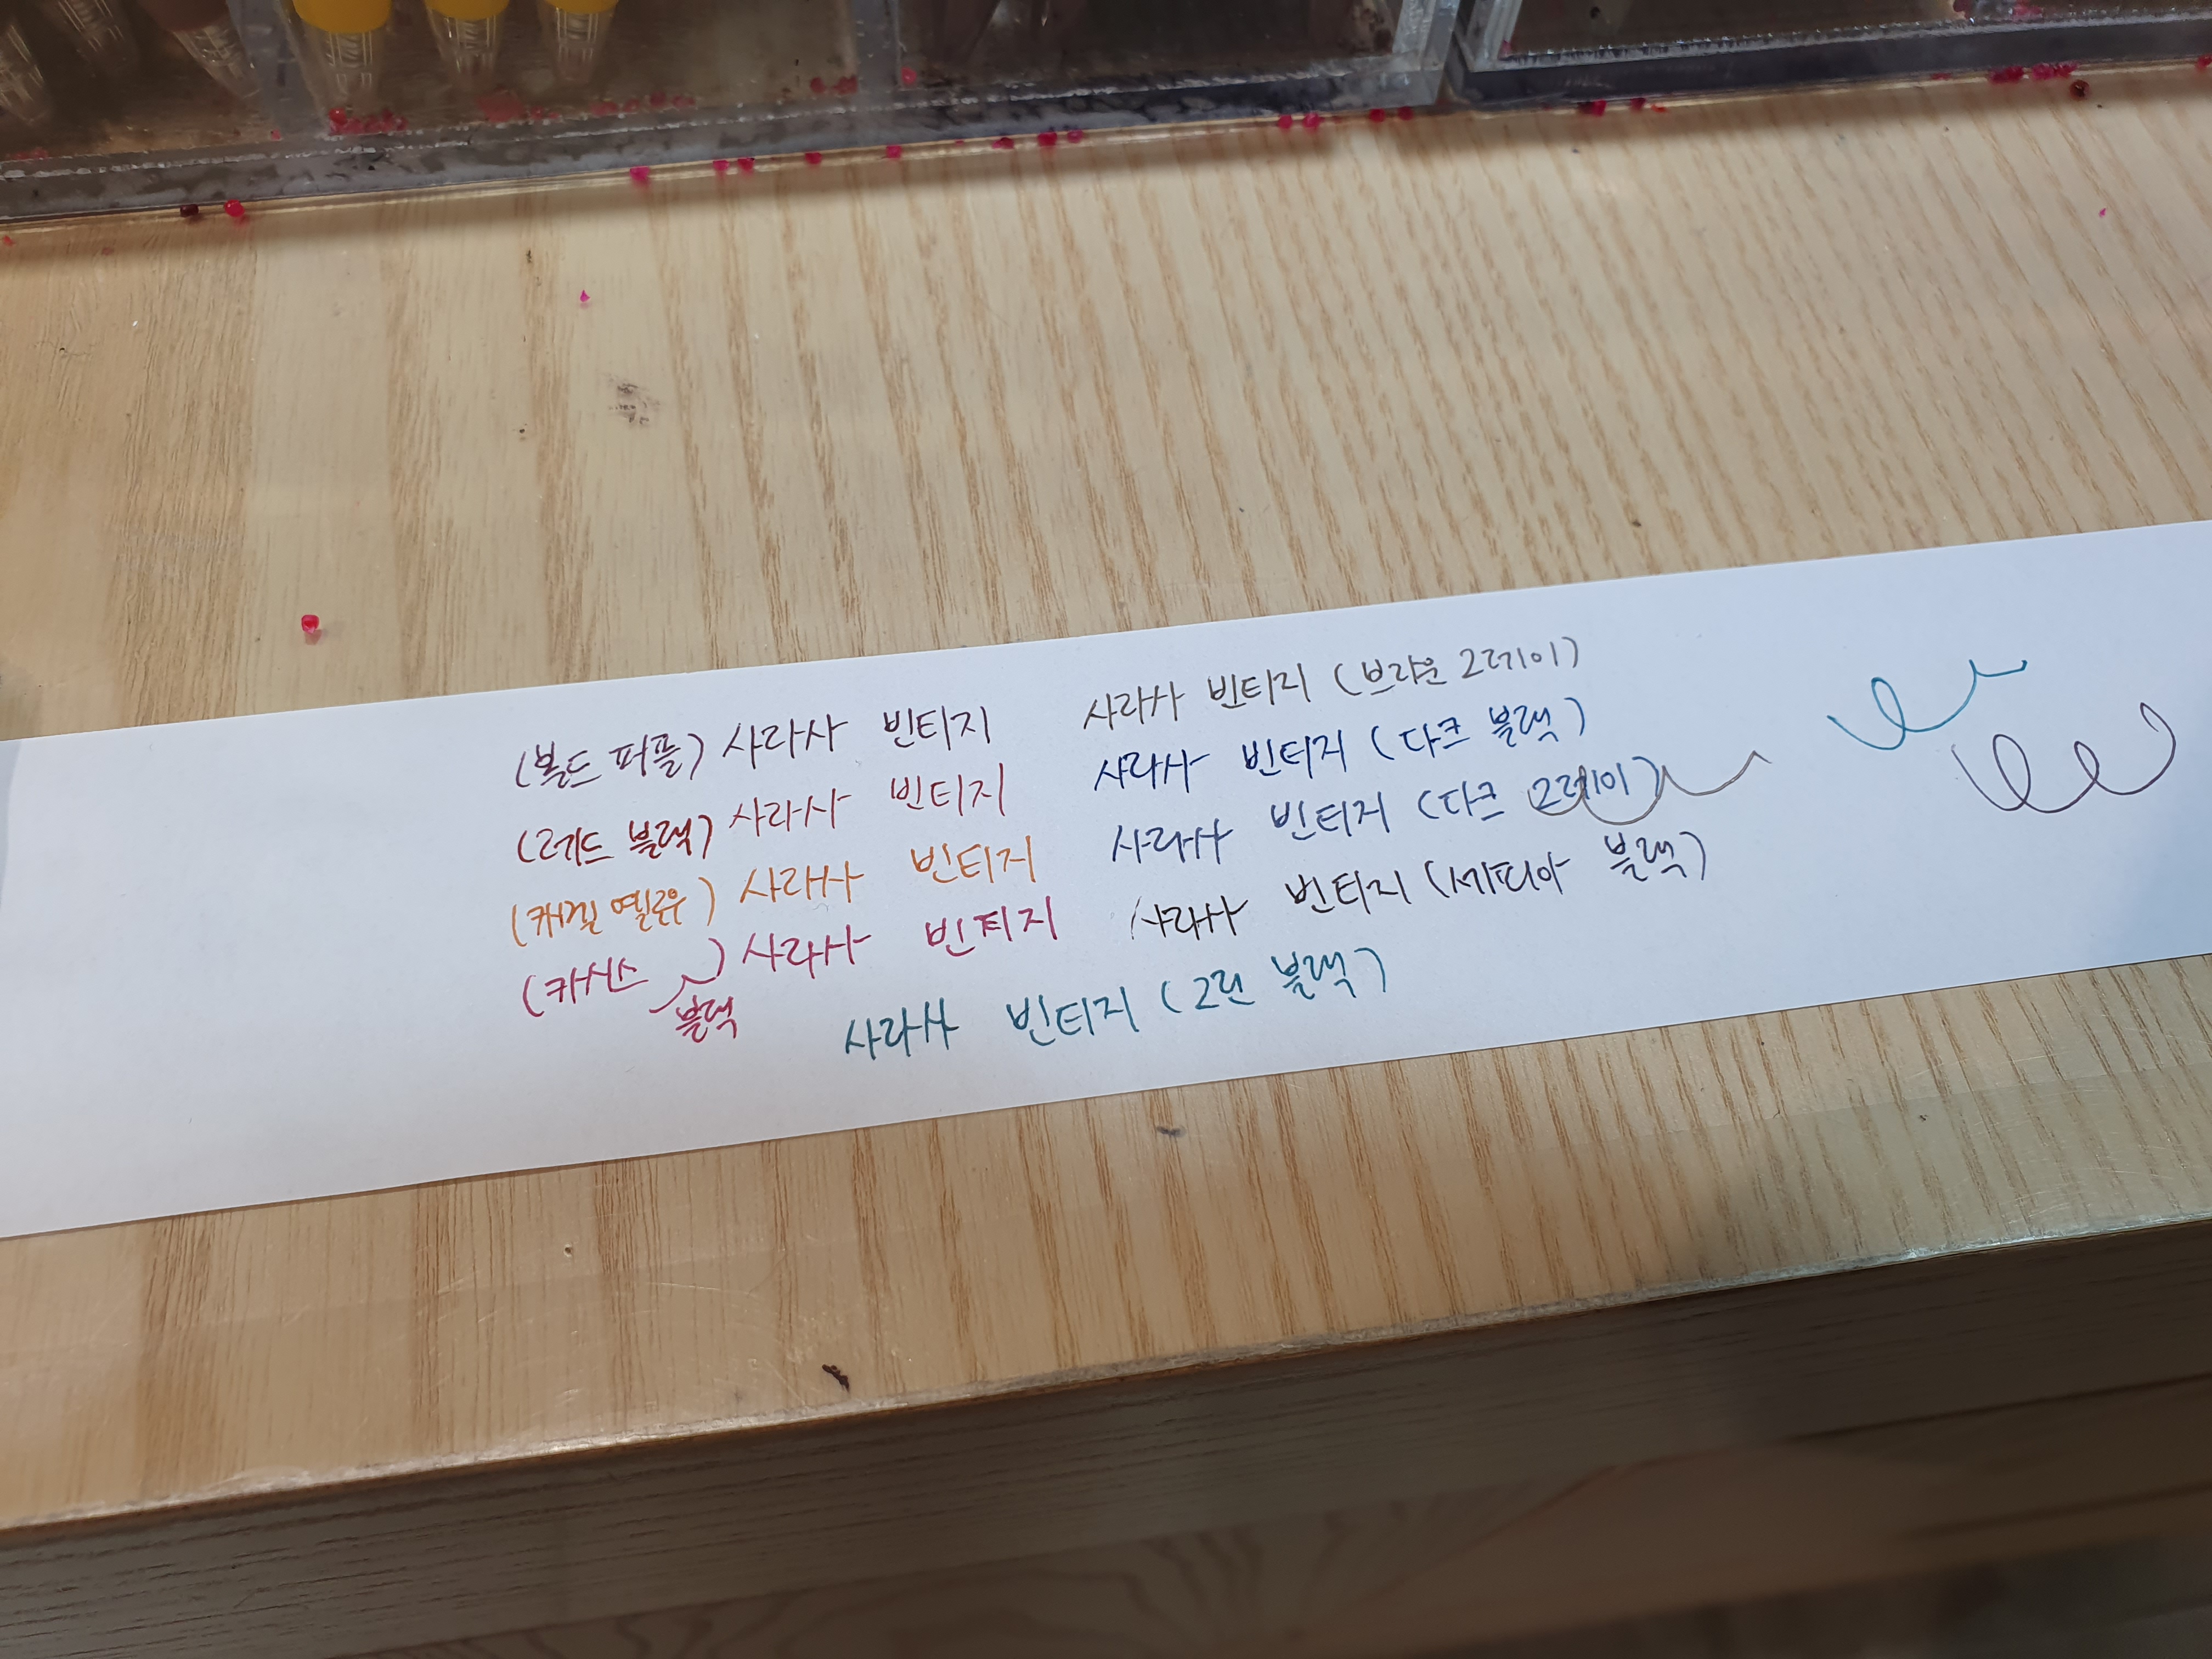 (볼드 퍼플) 사라사 빈티지 사라사 빈티지 (브라운 그레이)
(레드 블랙) 사라사 빈티지 사라사 빈티지 (다크 블랙)
(캐멀 옐로우) 사라사 빈티지 사라사 빈티지 (다크 그레이)
(카시스 블랙) 사라사 빈티지 사라사 빈티지 (세피아 블랙)
사라사 빈티지 (그린 블랙)